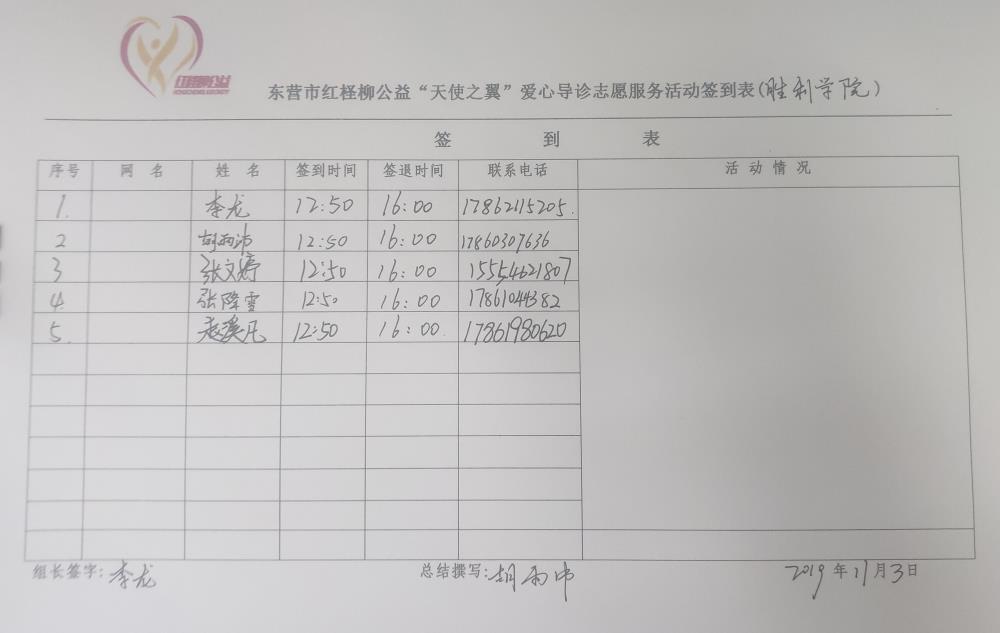 红柽柳公益
东营市红柽柳公益“天使之翼”爱心导诊志愿服务活动签到表(胜利学院)
签 到 表
序号 网 名 姓 名 签到时间 签退时间 联系电话 活 动 情 况
1. 李龙 12:50 16:00 17862115205.
2 胡雨沛 12:50 16:00 17860307636
3 张文婷 12:50 16:00 15554621807
4. 张降雪 12:50 16:00 17861044382
5. 12:50 16:00. 17861980620
组长签字:李龙 总结撰写:胡雨沛 2019年11月3日